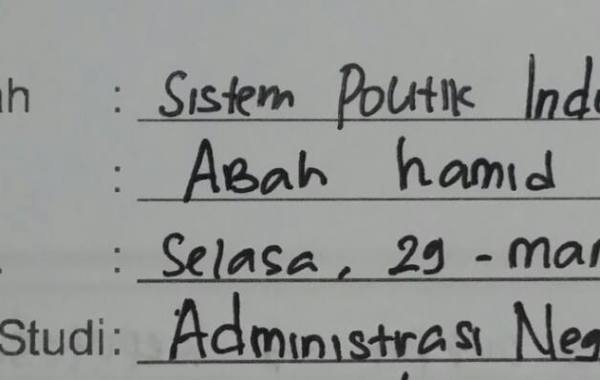 ah : Sistem Politik Indo
: Abah hamid
. : Selasa, 29 - mar
Studi: Administrasi Neg